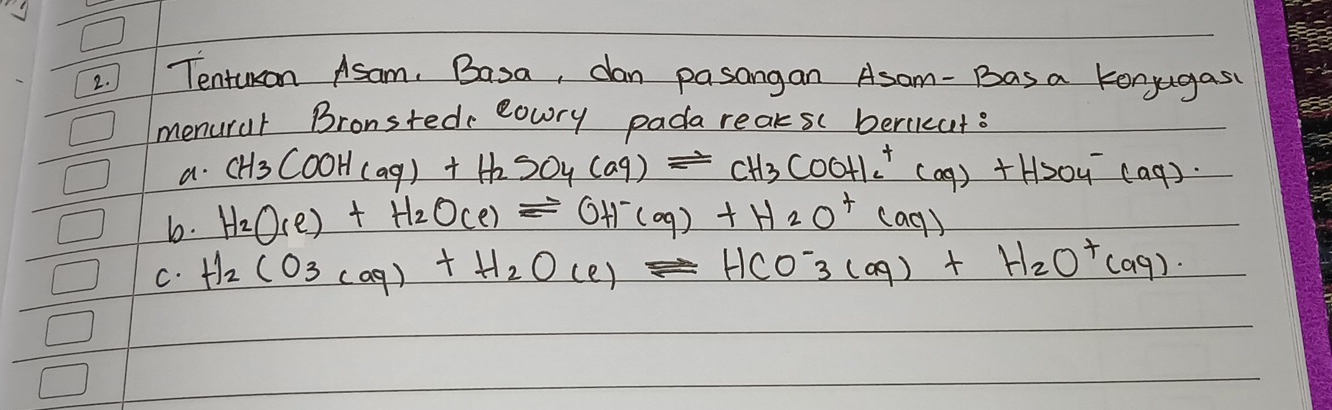 2. Tentukan Asam, Basa, dan pasangan Asam-Basa konjugasi
menurut Bronsted, lowry pada reaksi berikut:
a. CH3COOH (aq) + H2SO4 (aq) ⇌ CH3COOH2+ (aq) + HSO4- (aq).
b. H2O(l) + H2O(l) ⇌ OH-(aq) + H2O+ (aq)
c. H2CO3 (aq) + H2O (l) ⇌ HCO-3 (aq) + H2O+ (aq).